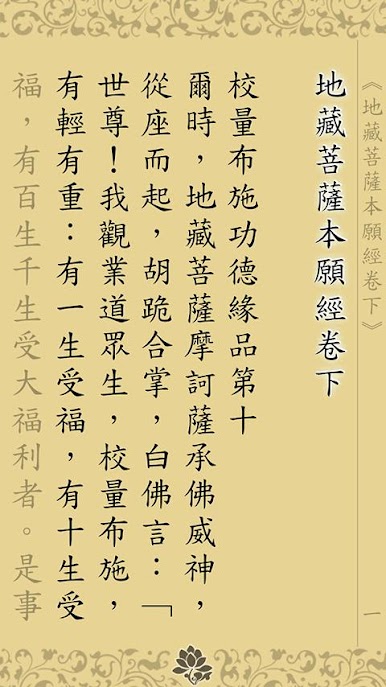 《地藏菩薩本願經卷下》
一
地藏菩薩本願經卷下
校量布施功德緣品第十
爾時，地藏菩薩摩訶薩承佛威神，
從座而起，胡跪合掌，白佛言：「
世尊！我觀業道眾生，校量布施，
有輕有重：有一生受福，有十生受
福，有百生千生受大福利者。是事